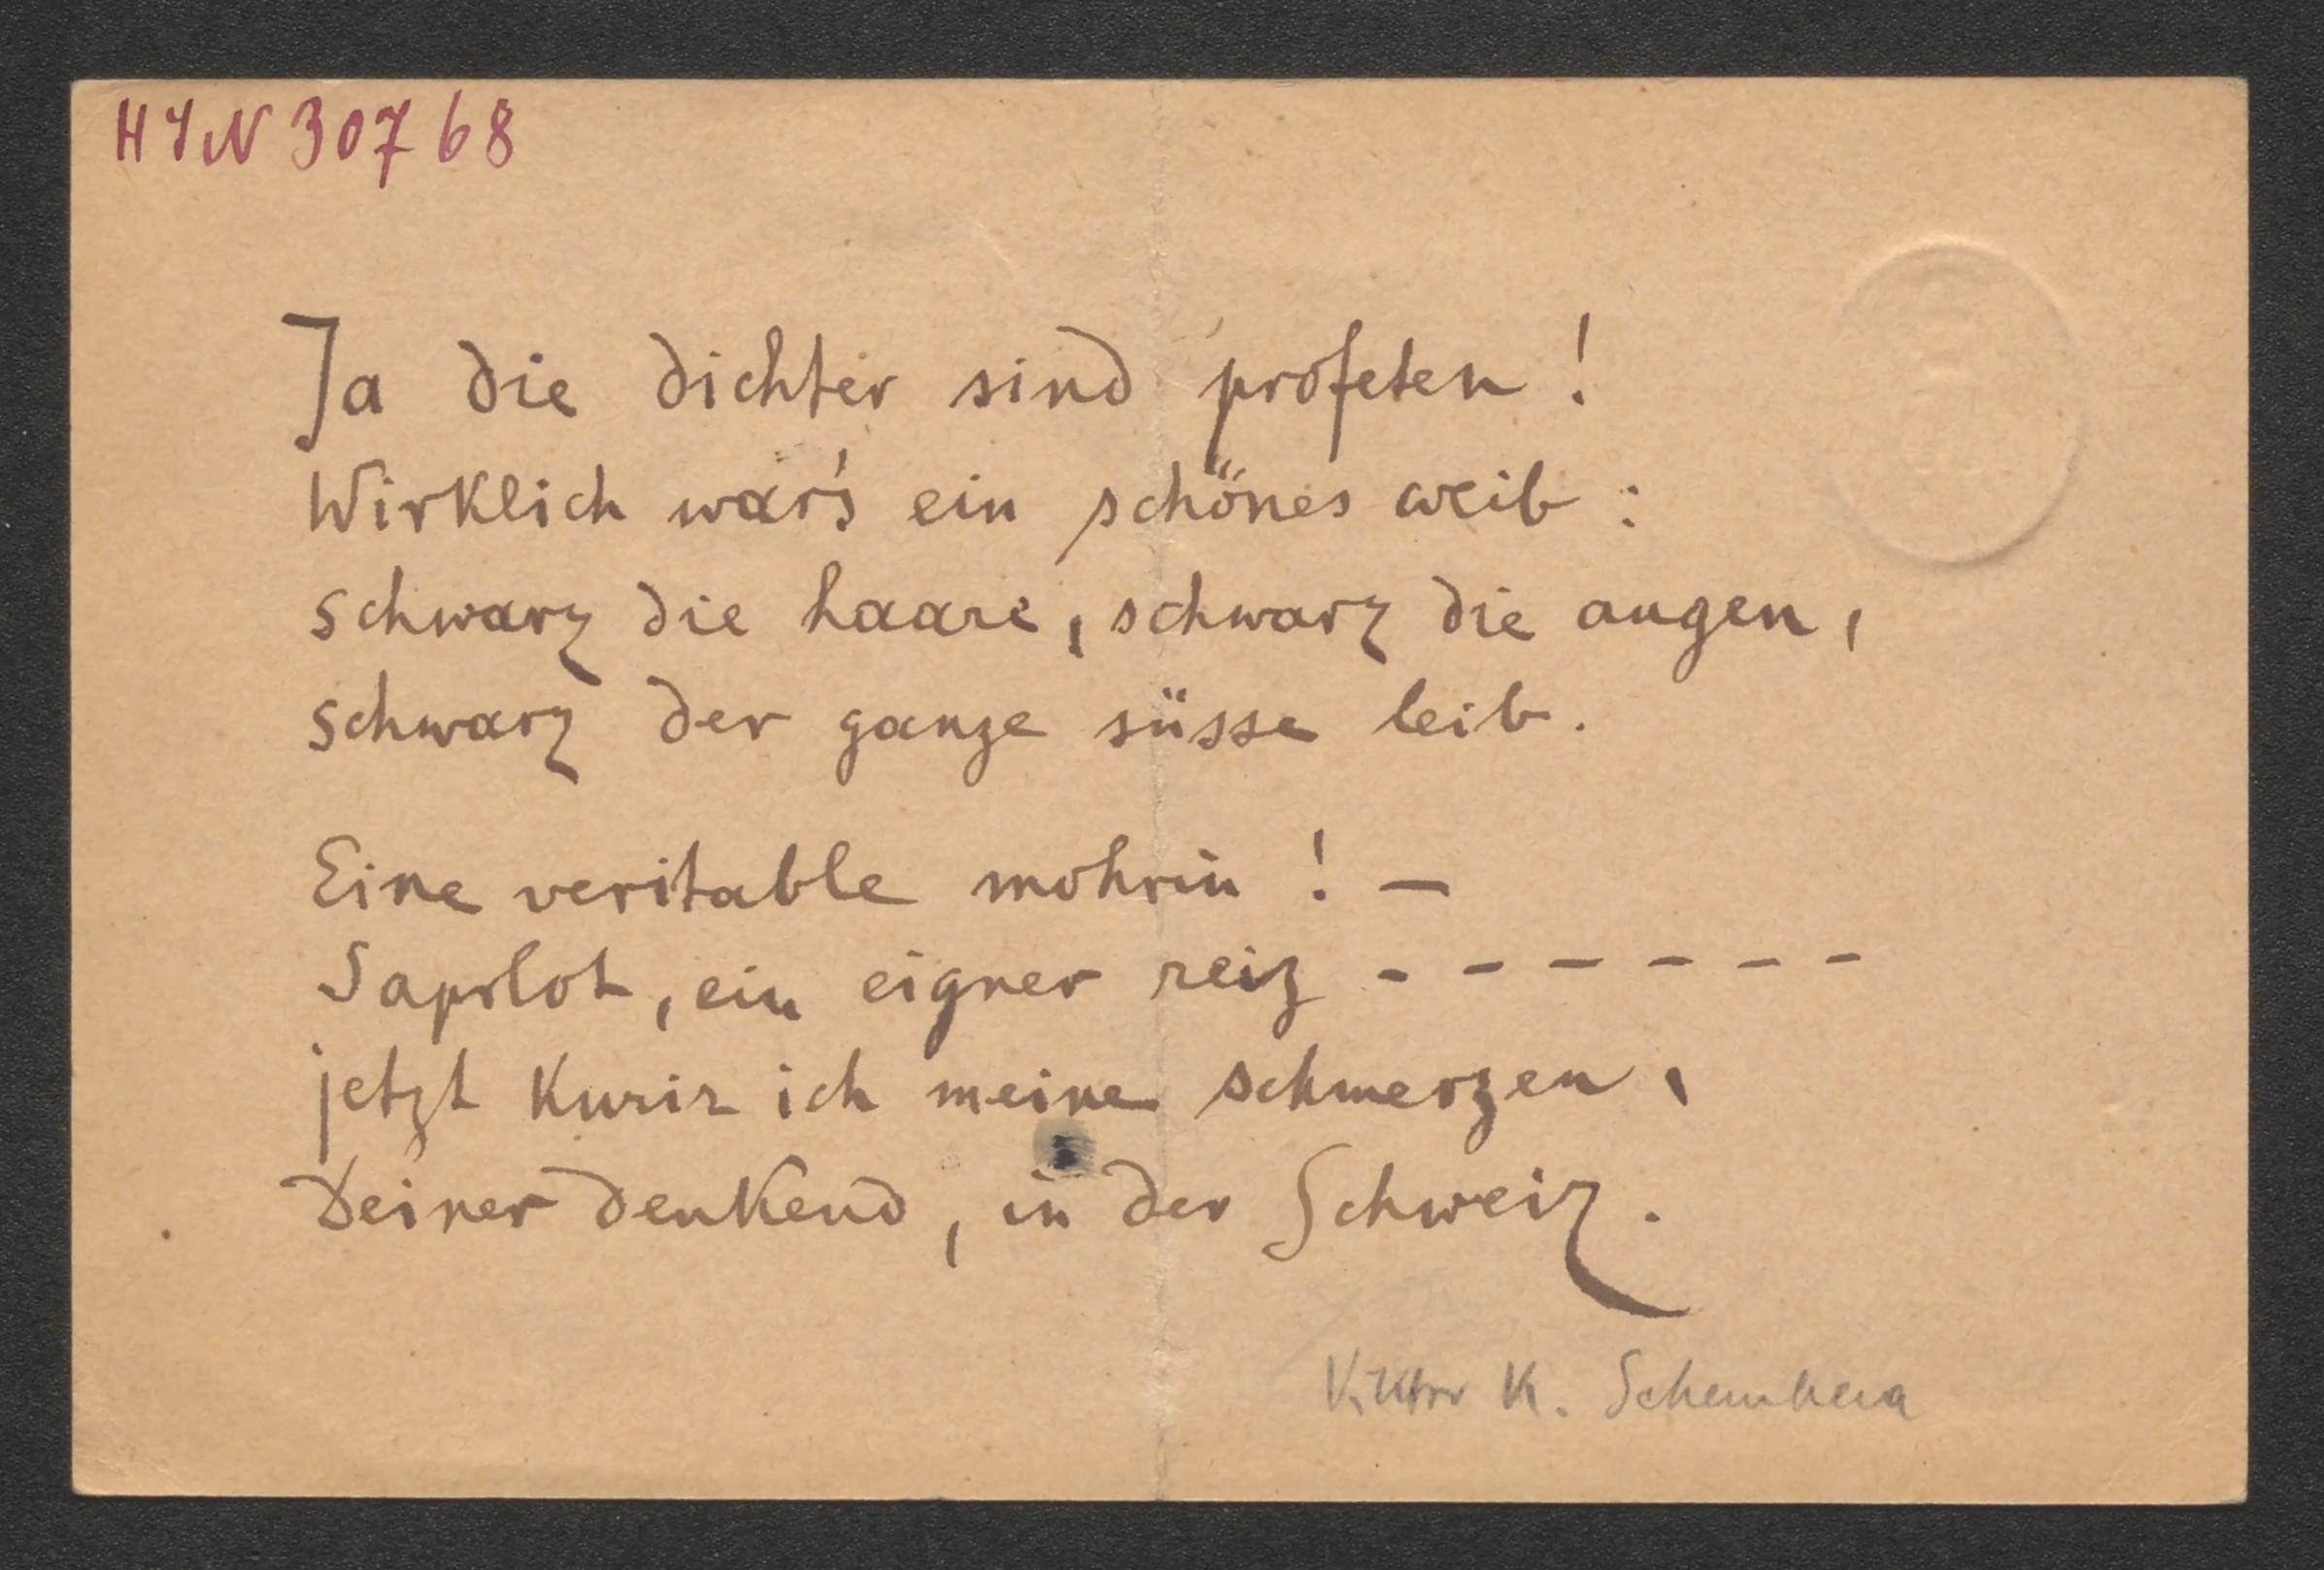 HIN 30768
Ja die dichter sind profeten!
Wirklich war's ein schönes weib:
schwarz die haare, schwarz die augen,
schwarz der ganze süsse leib.
Eine veritable mohrin! —
Saprlot, ein eigner reiz - - - - - -
jetzt kurir ich meine schmerzen,
Deiner denkend, in der Schweiz.
Viktor K. Schembera